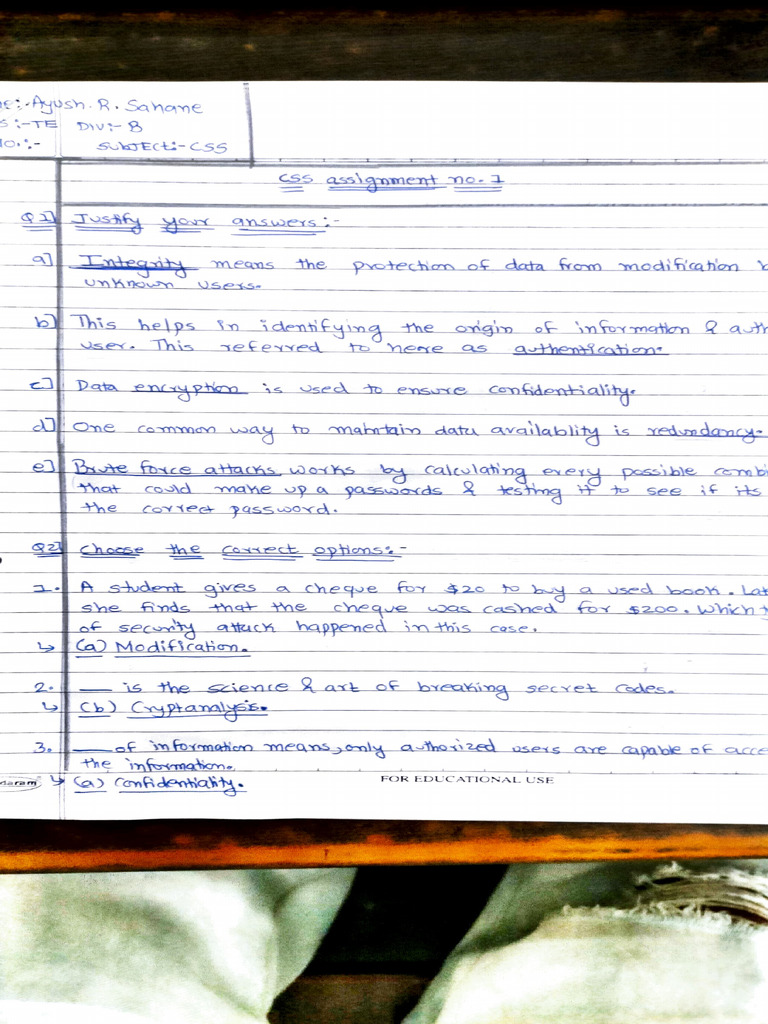 e:- Ayush. R. Sahane
S:-TE DIV:- B
NO.:- SUBJECT:- CSS
CSS assignment no. 1
Q1] Justify your answers:-
a] Integrity means the protection of data from modification b
unknown users.
b] This helps in identifying the origin of information & auth
user. This referred to here as authentication.
c] Data encryption is used to ensure confidentiality.
d] One common way to maintain data availablity is redundancy.
e] Brute force attacks works by calculating every possible combi
that could make up a passwords & testing it to see if its
the correct password.
Q2] Choose the correct options:-
1. A student gives a cheque for $20 to buy a used book. Lat
she finds that the cheque was cashed for $200. Which t
of security attack happened in this case.
↳ (a) Modification.
2. ___ is the science & art of breaking secret codes.
↳ (b) Cryptanalysis.
3. ___ of information means, only authorized users are capable of acce
the information.
↳ (a) Confidentiality.
FOR EDUCATIONAL USE